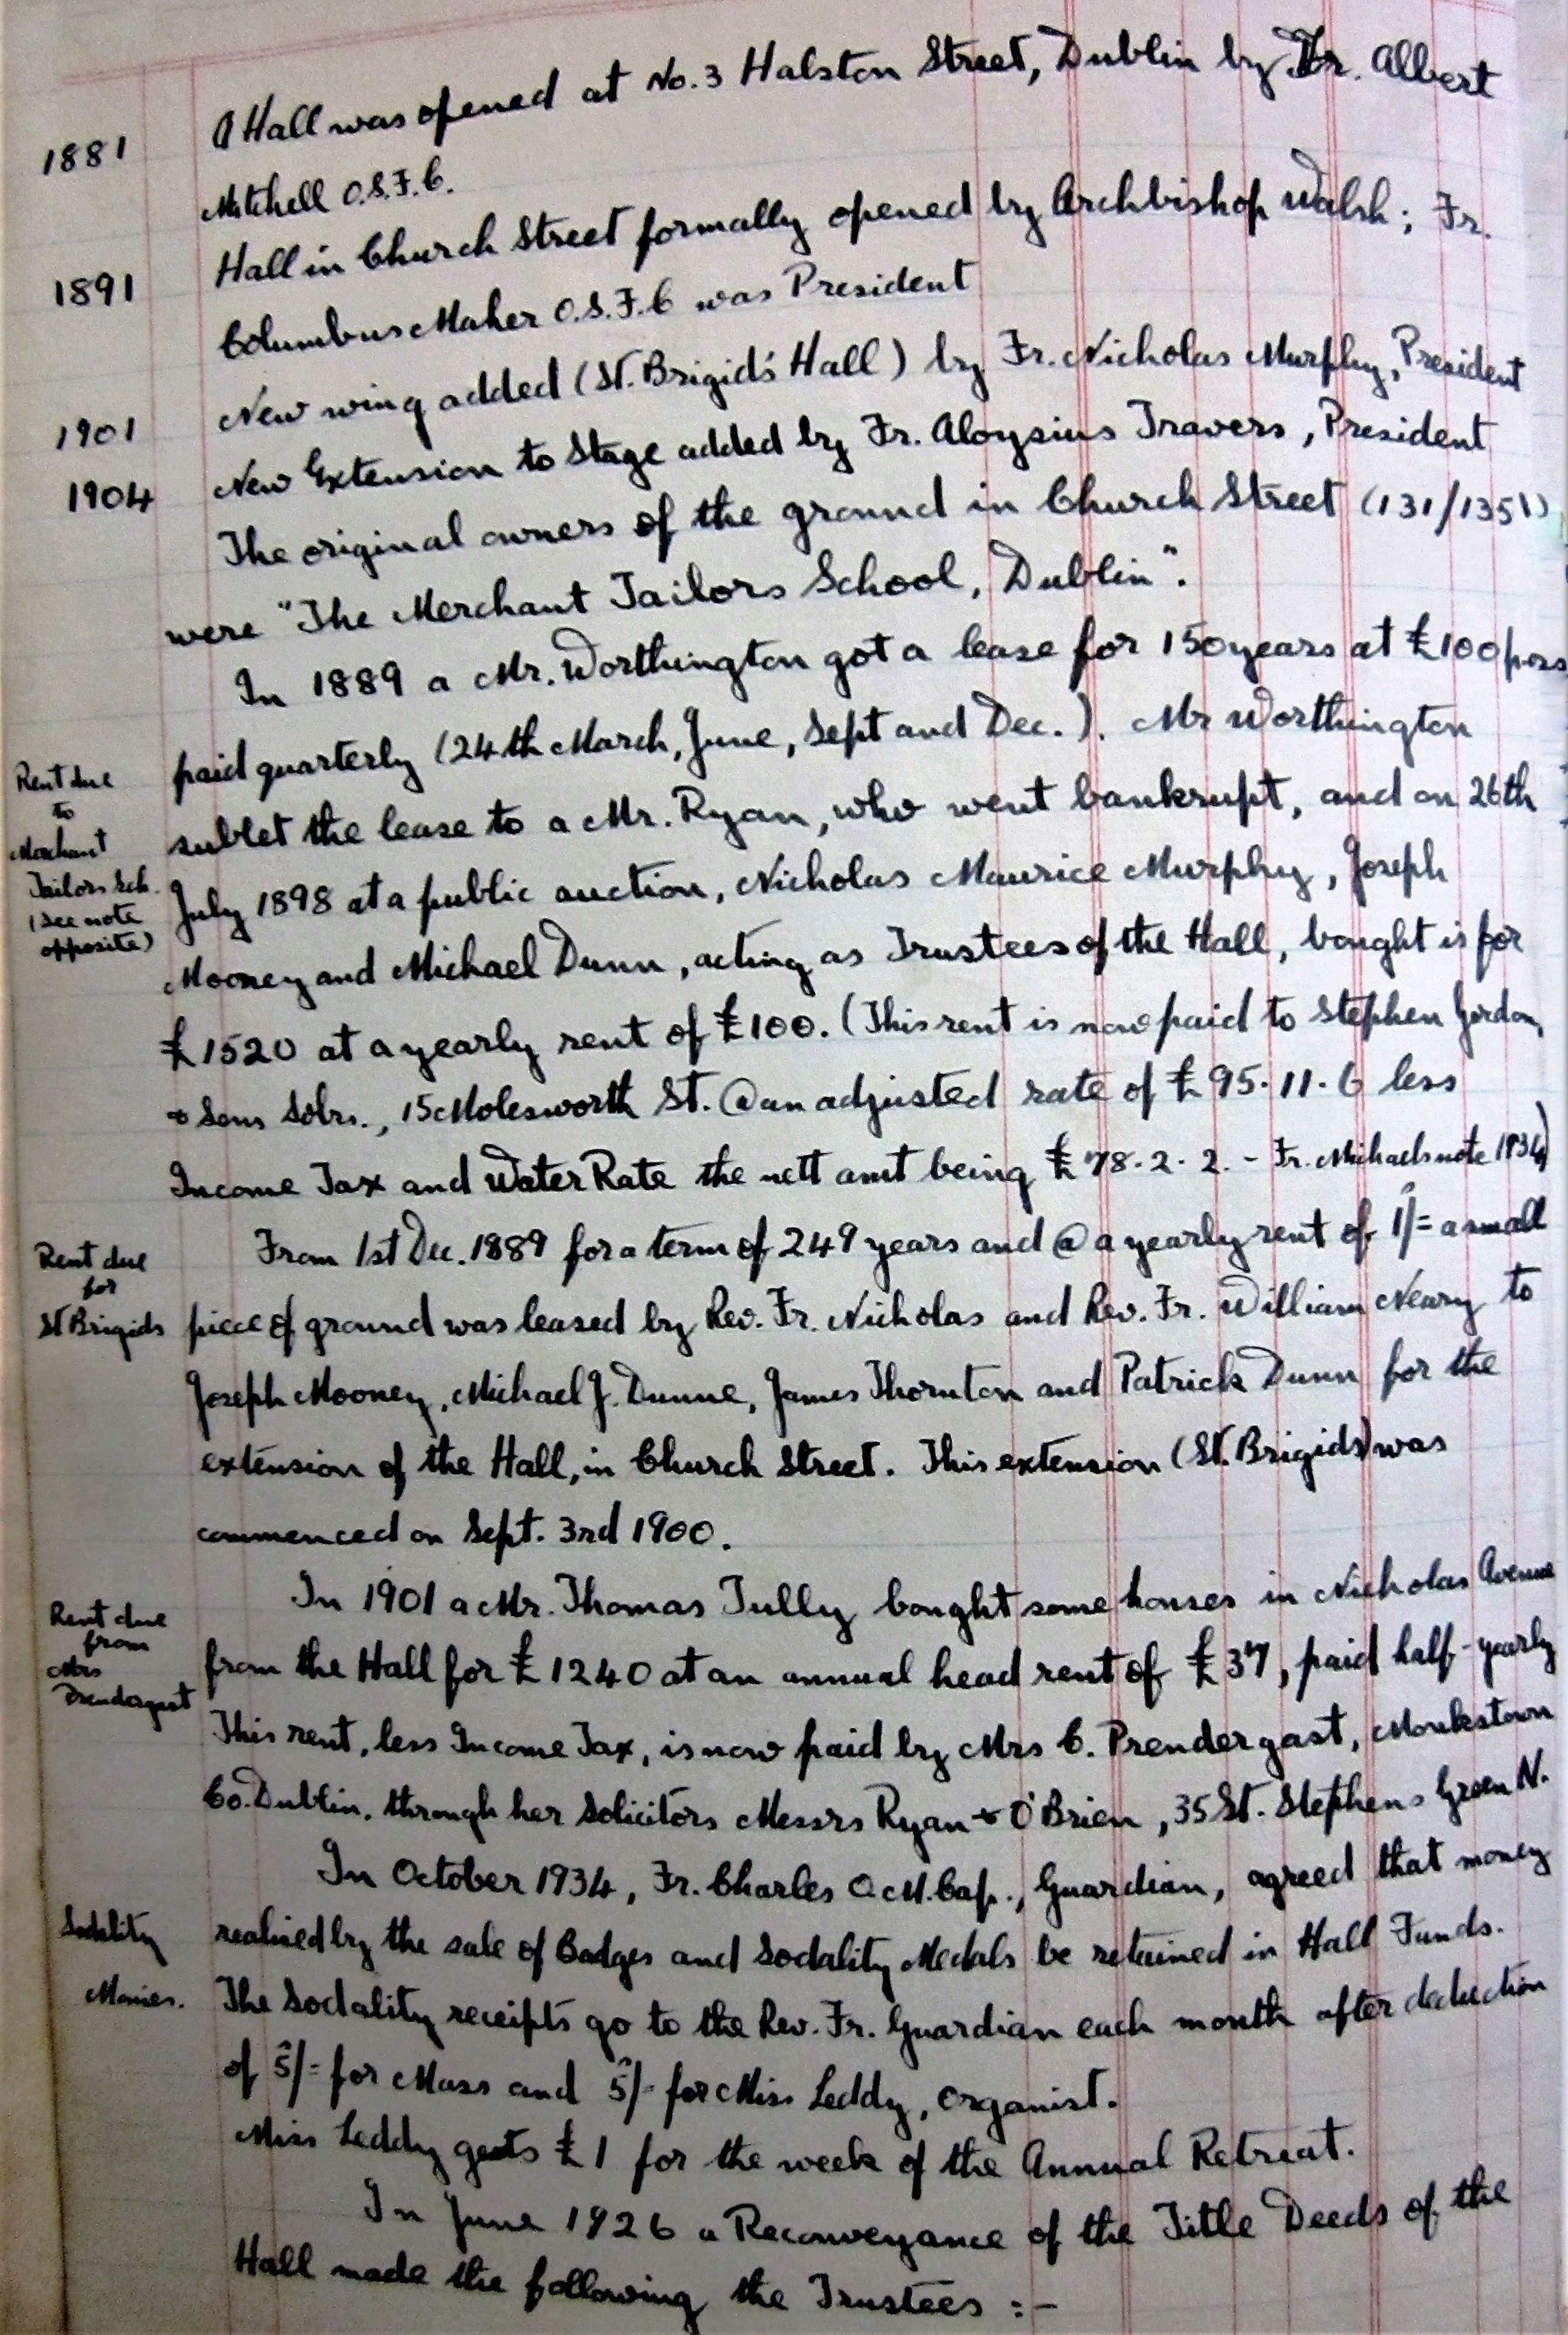 1881 A Hall was opened at No. 3 Halston Street, Dublin by Fr. Albert
Mitchell O.S.F.C.
1891 Hall in Church Street formally opened by Archbishop Walsh; Fr.
Columbus Maher O.S.F.C was President
1901 New wing added (St. Brigid's Hall) by Fr. Nicholas Murphy, President
1904 New Extension to Stage added by Fr. Aloysius Travers, President
The original owners of the ground in Church Street (131/135
were "The Merchant Tailors School, Dublin".
In 1889 a Mr. Worthington got a lease for 150 years at £100
paid quarterly (24th March, June, Sept and Dec.). Mr Worthington
Rent due
to
Merchant
Tailors Sch.
(See note
opposite)
sublet the lease to a Mr. Ryan, who went bankrupt, and on 26th
July 1898 at a public auction, Nicholas Maurice Murphy, Joseph
Mooney and Michael Dunn, acting as Trustees of the Hall, bought is for
£1520 at a yearly rent of £100. (This rent is now paid to Stephen Gordon,
& Sons Solrs., 15 Molesworth St. @ an adjusted rate of £95.11.6 less
Income Tax and Water Rate the nett amt being £78.2.2. - Fr. Michaels note 1934)
Rent due
for
St Brigids
From 1st Dec. 1889 for a term of 249 years and @ a yearly rent of 1/= a small
piece of ground was leased by Rev. Fr. Nicholas and Rev. Fr. William Neary to
Joseph Mooney, Michael J. Dunne, James Thornton and Patrick Dunn for the
extension of the Hall, in Church Street. This extension (St. Brigids) was
commenced on Sept. 3rd 1900.
Rent due
from
Mrs
Prendergast
In 1901 a Mr. Thomas Tully bought some houses in Nicholas Avenue
from the Hall for £1240 at an annual head rent of £37, paid half-yearly
This rent, less Income Tax, is now paid by Mrs C. Prendergast, Monkstown
Co. Dublin, through her Solicitors Messrs Ryan & O'Brien, 35 St. Stephens Green N.
In October 1934, Fr. Charles O.M.Cap., Guardian, agreed that money
Sodality
Monies.
realised by the sale of Badges and Sodality Medals be retained in Hall Funds.
The Sodality receipts go to the Rev. Fr. Guardian each month after deduction
of 5/= for Mass and 5/- for Miss Leddy, organist.
Miss Leddy gets £1 for the week of the Annual Retreat.
In June 1926 a Reconveyance of the Title Deeds of the
Hall made the following the Trustees :-